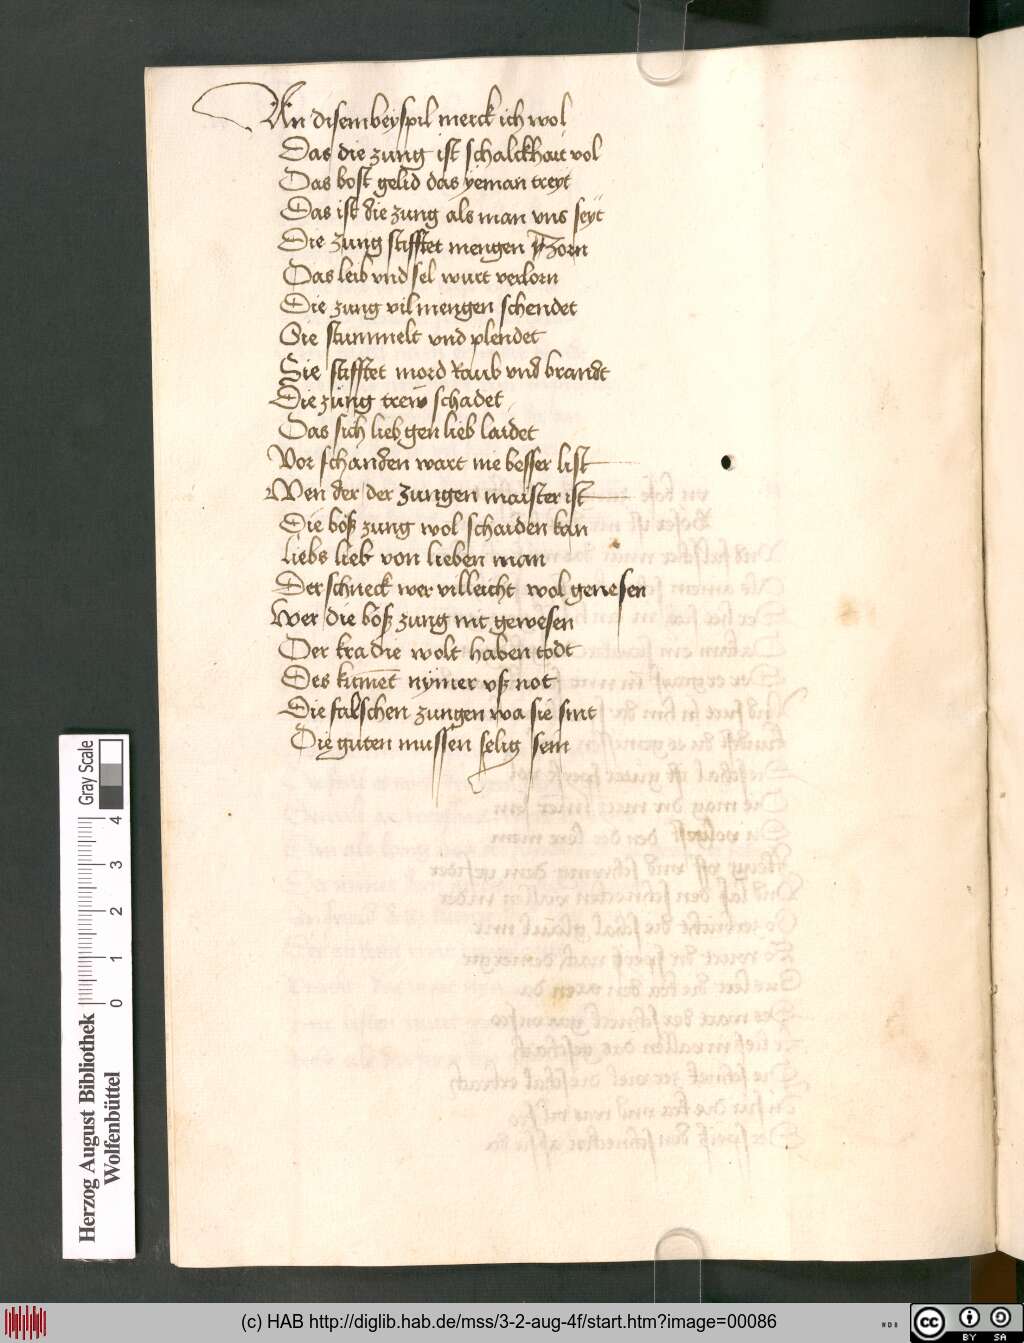 An disem beyspil merck ich wol
Das die zung ist schalckhait vol
Das bost gelid das yeman treyt
Das ist die zung als man vns seyt
Die zung stifftet mengen zorn
Das leib vnd sel wurt verlorn
Die zung vil mengen schendet
Sie stummelt vnd plendet
Sie stifftet mord Raub vnd brandt
Die zung trew schadet
Das sich lieb gen lieb laidet
Vor schanden wart nie besser list
Wen der der zungen maister ist
Die böß zung wol schaiden kan
liebs lieb von lieben man
Der schneck wer villeicht wol genesen
Wer die böß zung nit gewesen
Der kra die wolt haben todt
Des kumet nymer vß not
Die falschen zungen wa sie sint
Die guten mussen selig sein
Gray Scale
0 1 2 3 4
Herzog August Bibliothek
Wolfenbüttel
(c) HAB http://diglib.hab.de/mss/3-2-aug-4f/start.htm?image=00086
cc BY SA